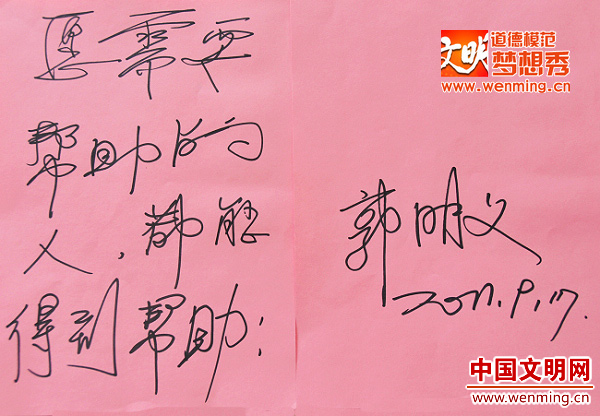 愿需要
帮助的
人，都能
得到帮助！
文明 道德模范
梦想秀
www.wenming.cn
郭明义
2011.9.17.
中国文明网
www.wenming.cn